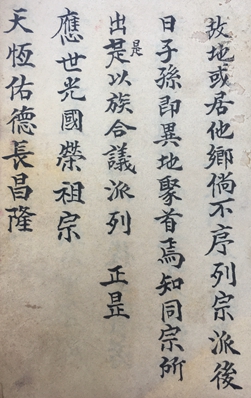 故地或居他鄉倘不序列宗派後
日子孫即異地聚首焉知同宗所
是
出昰以族合議派列　正昰
應世光國榮祖宗
天恆佑德長昌隆